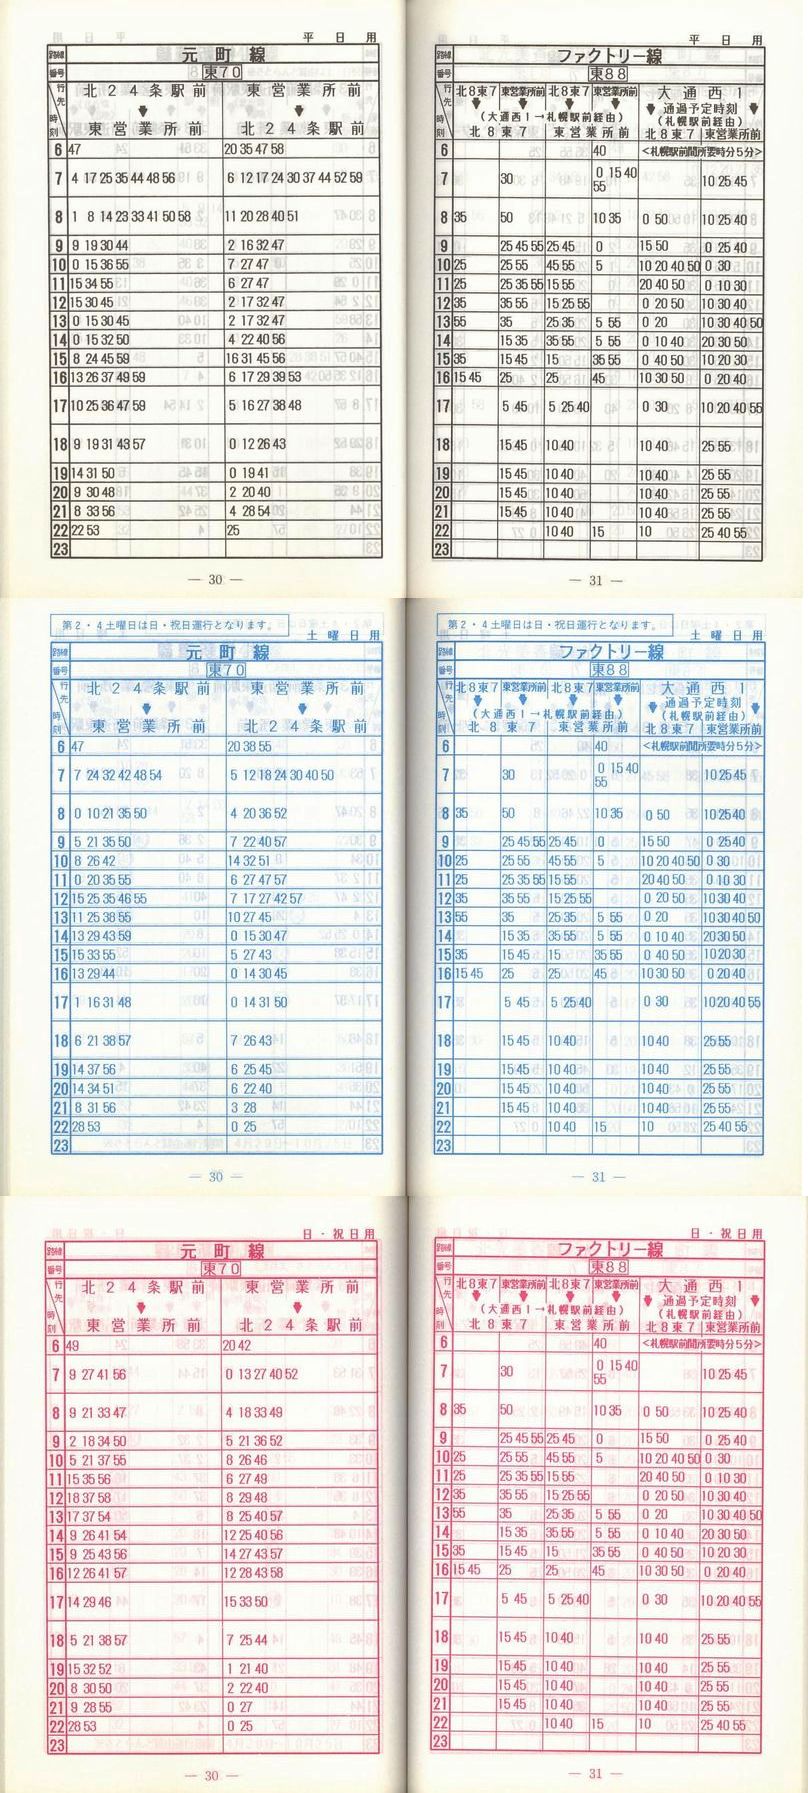 平日用
路線 元町線
番号 東70
行先 時刻 北24条駅前 東営業所前
東営業所前 北24条駅前
6 47 20 35 47 58
7 4 17 25 35 44 48 56 6 12 17 24 30 37 44 52 59
8 1 8 14 23 33 41 50 58 11 20 28 40 51
9 9 19 30 44 2 16 32 47
10 0 15 36 55 7 27 47
11 15 34 55 6 27 47
12 15 30 45 2 17 32 47
13 0 15 30 45 2 17 32 47
14 0 15 32 50 4 22 40 56
15 8 24 45 59 16 31 45 56
16 13 26 37 49 59 6 17 29 39 53
17 10 25 36 47 59 5 16 27 38 48
18 9 19 31 43 57 0 12 26 43
19 14 31 50 0 19 41
20 9 30 48 2 20 40
21 8 33 56 4 28 54
22 22 53 25
23
— 30 —
平日用
路線 ファクトリー線
番号 東88
行先 時刻 北8東7 東営業所前 北8東7 東営業所前 大通西1
(大通西1→札幌駅前経由) 通過予定時刻
(札幌駅前経由)
北8東7 東営業所前 北8東7 東営業所前
6 40 <札幌駅前間所要時分5分>
7 30 0 15 40 10 25 45
55
8 35 50 10 35 0 50 10 25 40
9 25 45 55 25 45 0 15 50 0 25 40
10 25 25 55 45 55 5 10 20 40 50 0 30
11 25 25 35 55 15 55 20 40 50 0 10 30
12 35 35 55 15 25 55 0 20 50 10 30 40
13 55 35 25 35 5 55 0 20 10 30 40 50
14 15 35 35 55 5 55 0 10 40 20 30 50
15 35 15 45 15 35 55 0 40 50 10 20 30
16 15 45 25 25 45 10 30 50 0 20 40
17 5 45 5 25 40 0 30 10 20 40 55
18 15 45 10 40 10 40 25 55
19 15 45 10 40 10 40 25 55
20 15 45 10 40 10 40 25 55
21 15 45 10 40 10 40 25 55
22 10 40 15 10 25 40 55
23
— 31 —
第2・4土曜日は日・祝日運行となります。
土曜日用
路線 元町線
番号 東70
行先 時刻 北24条駅前 東営業所前
東営業所前 北24条駅前
6 47 20 38 55
7 7 24 32 42 48 54 5 12 18 24 30 40 50
8 0 10 21 35 50 4 20 36 52
9 5 21 35 50 7 22 40 57
10 8 26 42 14 32 51
11 0 20 35 55 6 27 47 57
12 15 25 35 46 55 7 17 27 42 57
13 11 25 38 55 10 27 45
14 13 29 43 59 0 15 30 47
15 15 33 55 5 27 43
16 13 29 44 0 14 30 45
17 1 16 31 48 0 14 31 50
18 6 21 38 57 7 26 43
19 14 37 56 6 25 45
20 14 34 51 6 22 40
21 8 31 56 3 28
22 28 53 0 25
23
— 30 —
第2・4土曜日は日・祝日運行となります。
土曜日用
路線 ファクトリー線
番号 東88
行先 時刻 北8東7 東営業所前 北8東7 東営業所前 大通西1
(大通西1→札幌駅前経由) 通過予定時刻
(札幌駅前経由)
北8東7 東営業所前 北8東7 東営業所前
6 40 <札幌駅前間所要時分5分>
7 30 0 15 40 10 25 45
55
8 35 50 10 35 0 50 10 25 40
9 25 45 55 25 45 0 15 50 0 25 40
10 25 25 55 45 55 5 10 20 40 50 0 30
11 25 25 35 55 15 55 20 40 50 0 10 30
12 35 35 55 15 25 55 0 20 50 10 30 40
13 55 35 25 35 5 55 0 20 10 30 40 50
14 15 35 35 55 5 55 0 10 40 20 30 50
15 35 15 45 15 35 55 0 40 50 10 20 30
16 15 45 25 25 45 10 30 50 0 20 40
17 5 45 5 25 40 0 30 10 20 40 55
18 15 45 10 40 10 40 25 55
19 15 45 10 40 10 40 25 55
20 15 45 10 40 10 40 25 55
21 15 45 10 40 10 40 25 55
22 10 40 15 10 25 40 55
23
— 31 —
日・祝日用
路線 元町線
番号 東70
行先 時刻 北24条駅前 東営業所前
東営業所前 北24条駅前
6 49 20 42
7 9 27 41 56 0 13 27 40 52
8 9 21 33 47 4 18 33 49
9 2 18 34 50 5 21 36 52
10 5 21 37 55 8 26 46
11 15 35 56 6 27 49
12 18 37 58 8 29 48
13 17 37 54 8 25 40 57
14 9 26 41 54 12 25 40 56
15 9 25 43 56 14 27 43 57
16 12 26 41 57 12 28 43 58
17 14 29 46 15 33 50
18 5 21 38 57 7 25 44
19 15 32 52 1 21 40
20 8 30 50 2 22 40
21 9 28 55 0 27
22 28 53 0 25
23
— 30 —
日・祝日用
路線 ファクトリー線
番号 東88
行先 時刻 北8東7 東営業所前 北8東7 東営業所前 大通西1
(大通西1→札幌駅前経由) 通過予定時刻
(札幌駅前経由)
北8東7 東営業所前 北8東7 東営業所前
6 40 <札幌駅前間所要時分5分>
7 30 0 15 40 10 25 45
55
8 35 50 10 35 0 50 10 25 40
9 25 45 55 25 45 0 15 50 0 25 40
10 25 25 55 45 55 5 10 20 40 50 0 30
11 25 25 35 55 15 55 20 40 50 0 10 30
12 35 35 55 15 25 55 0 20 50 10 30 40
13 55 35 25 35 5 55 0 20 10 30 40 50
14 15 35 35 55 5 55 0 10 40 20 30 50
15 35 15 45 15 35 55 0 40 50 10 20 30
16 15 45 25 25 45 10 30 50 0 20 40
17 5 45 5 25 40 0 30 10 20 40 55
18 15 45 10 40 10 40 25 55
19 15 45 10 40 10 40 25 55
20 15 45 10 40 10 40 25 55
21 15 45 10 40 10 40 25 55
22 10 40 15 10 25 40 55
23
— 31 —